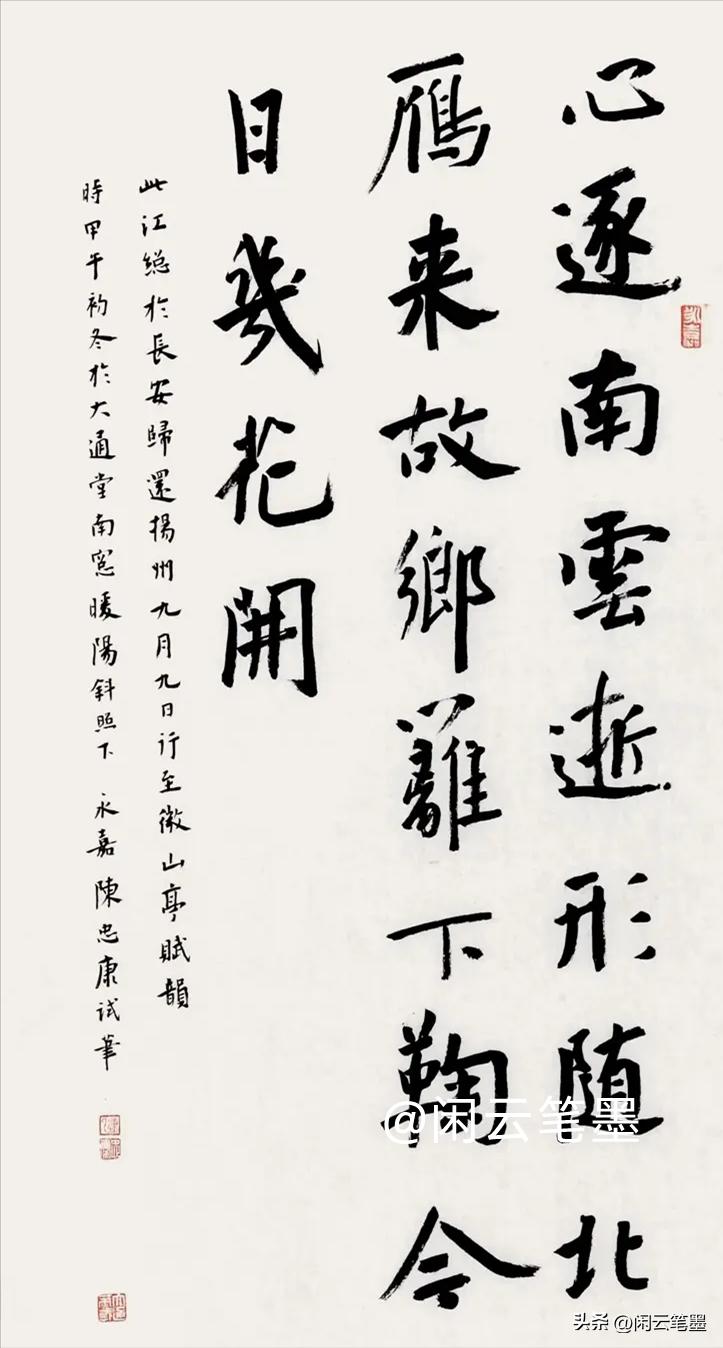 心逐南雲逝形随北
雁来故鄉籬下鞠今
日幾花開
此江總於長安歸還揚州九月九日行至微山亭賦韻
時甲午初冬於大通堂南窓暖陽斜照下 永嘉陳忠康试筆
@闲云笔墨
头条 @闲云笔墨